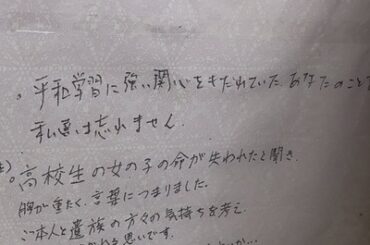 。平和学習に強い関心をもたれていた、あなたのこと
私達は忘れません.
。高校生の女の子の命が失われたと聞き、
胸が重たく、言葉につまりました。
ご本人と遺族の方々の気持ちを考え
思いです。